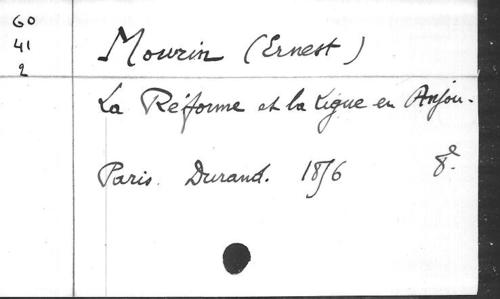 60
41
2
Mourin (Ernest)
La Réforme et la Ligue en Anjou.
Paris. Durand. 1856 8º.